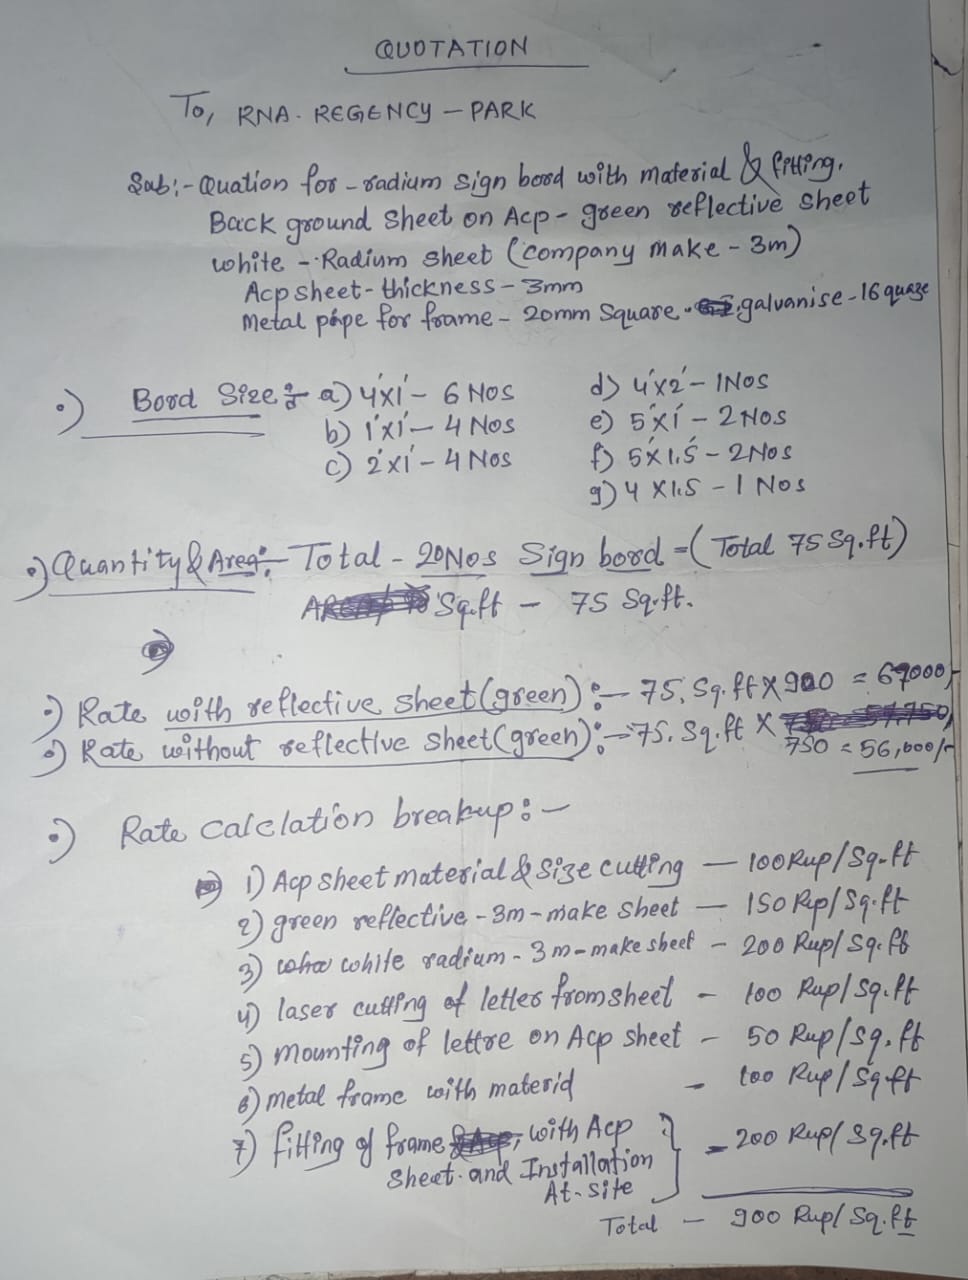 QUOTATION
To, RNA. REGENCY - PARK
Sub:- Quation for - radium sign bord with material & fitting.
Back ground Sheet on Acp - green reflective sheet
white - Radium sheet (company make - 3m)
Acp sheet - thickness - 3mm
Metal pipe for frame - 20mm Square. galvanise - 16 quage
Bord Size :- a) 4'x1' - 6 Nos
b) 1'x1' - 4 Nos
c) 2'x1' - 4 Nos
d) 4'x2' - 1Nos
e) 5'x1' - 2 Nos
f) 5'x1.5' - 2Nos
g) 4 x1.5 - 1 Nos
Quantity & Area:- Total - 20Nos Sign bord = (Total 75 Sq.ft)
Sq.ft - 75 Sq.ft.
Rate with reflective sheet (green) :- 75. Sq. ft X 900 = 67000/-
Rate without reflective sheet (green) :- 75. Sq. ft X
750 = 56,000/-
Rate calclation breakup :-
1) Acp sheet material & Size cutting - 100 Rup/Sq.ft
2) green reflective - 3m - make sheet - 150 Rup/Sq.ft
3) white radium - 3m - make sheet - 200 Rup/Sq.ft
4) laser cutting of letter from sheet - 100 Rup/Sq.ft
5) Mounting of lettre on Acp sheet - 50 Rup/Sq.ft
6) metal frame with materid - 100 Rup/Sq.ft
7) fitting of frame, with Acp - 200 Rup/Sq.ft
Sheet. and Installation
At-site
Total - 900 Rup/Sq.ft